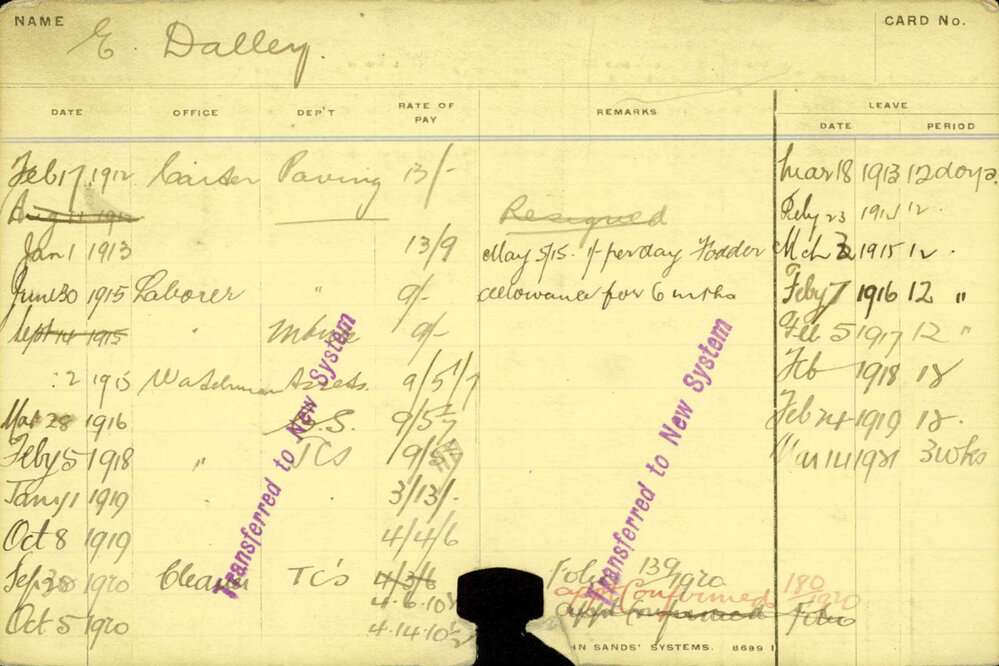 NAME E. Dalley. CARD No.
DATE OFFICE DEP'T RATE OF PAY REMARKS LEAVE
DATE PERIOD
Feb 17 1912 Carter Paving 13/- Mar 18 1913 12 days.
Aug 1912 Resigned Feby 23 12 "
Jan 1 1913 13/9 May 5/15. 1/- per day Fodder Mch 1915 12 "
June 30 1915 Laborer " 9/- allowance for 6 mths Feby 7 1916 12 "
Sept 14 1915 " 9/- Feb 5 1917 12 "
2 1915 Watchman 9/5 1/7 Feb 1918 18
Mar 28 1916 S. 9/5 Feb 24 1919 18.
Feby 5 1918 " TCs 9/5 Mar 14 1921 3 wks
Jany 1 1919 3/13/-
Oct 8 1919 4/4/6
Sep 1920 Cleaner TC's 4/3/6 Folio 139/1920
4.6.10½ appt Confirmed 180/1920
Oct 5 1920 4.14.10½ appt Confirmed Folio
Transferred to New System
Transferred to New System
IN SANDS' SYSTEMS. 8689